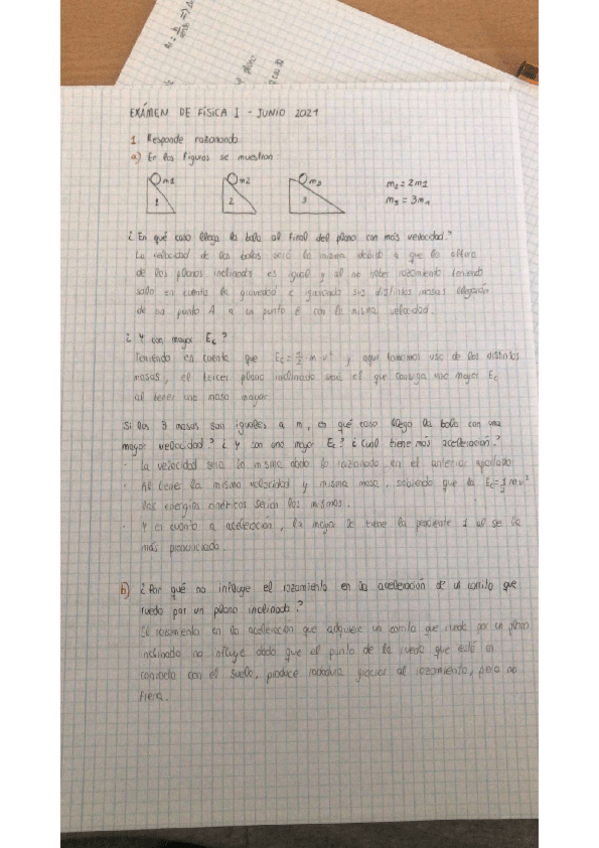 EXÁMEN DE FÍSICA I - JUNIO 2021
1. Responde razonando
a) En las figuras se muestran
m1 m2 m3 m2 = 2m1
1 2 3 m3 = 3m1
¿En qué caso llega la bola al final del plano con más velocidad?
La velocidad de las bolas será la misma debido a que la altura
de los planos inclinados es igual y al no haber rozamiento teniendo
solo en cuenta la gravedad e ignorando sus distintas masas llegarán
de un punto A a un punto B con la misma velocidad.
¿Y con mayor Ec?
Teniendo en cuenta que Ec = 1/2 m v² y aquí hacemos uso de las distintas
masas, el tercer plano inclinado será el que consiga una mayor Ec
al tener una masa mayor
Si las 3 masas son iguales a m, en qué caso llega la bola con una
mayor velocidad? ¿Y con una mayor Ec? ¿Cuál tiene más aceleración?
· La velocidad será la misma dado lo razonado en el anterior apartado
· Al tener la misma velocidad y misma masa, sabiendo que la Ec = 1/2 m v²
las energías cinéticas serían las mismas.
· Y en cuanto a aceleración, la mayor la tiene la pendiente 1 al ser la
más pronunciada.
b) ¿Por qué no influye el rozamiento en la aceleración de un carrito que
rueda por un plano inclinado?
El rozamiento en la aceleración que adquiere un carrito que rueda por un plano
inclinado no influye dado que el punto de la rueda que está en
contacto con el suelo, produce rodadura gracias al rozamiento, pero no
frena.